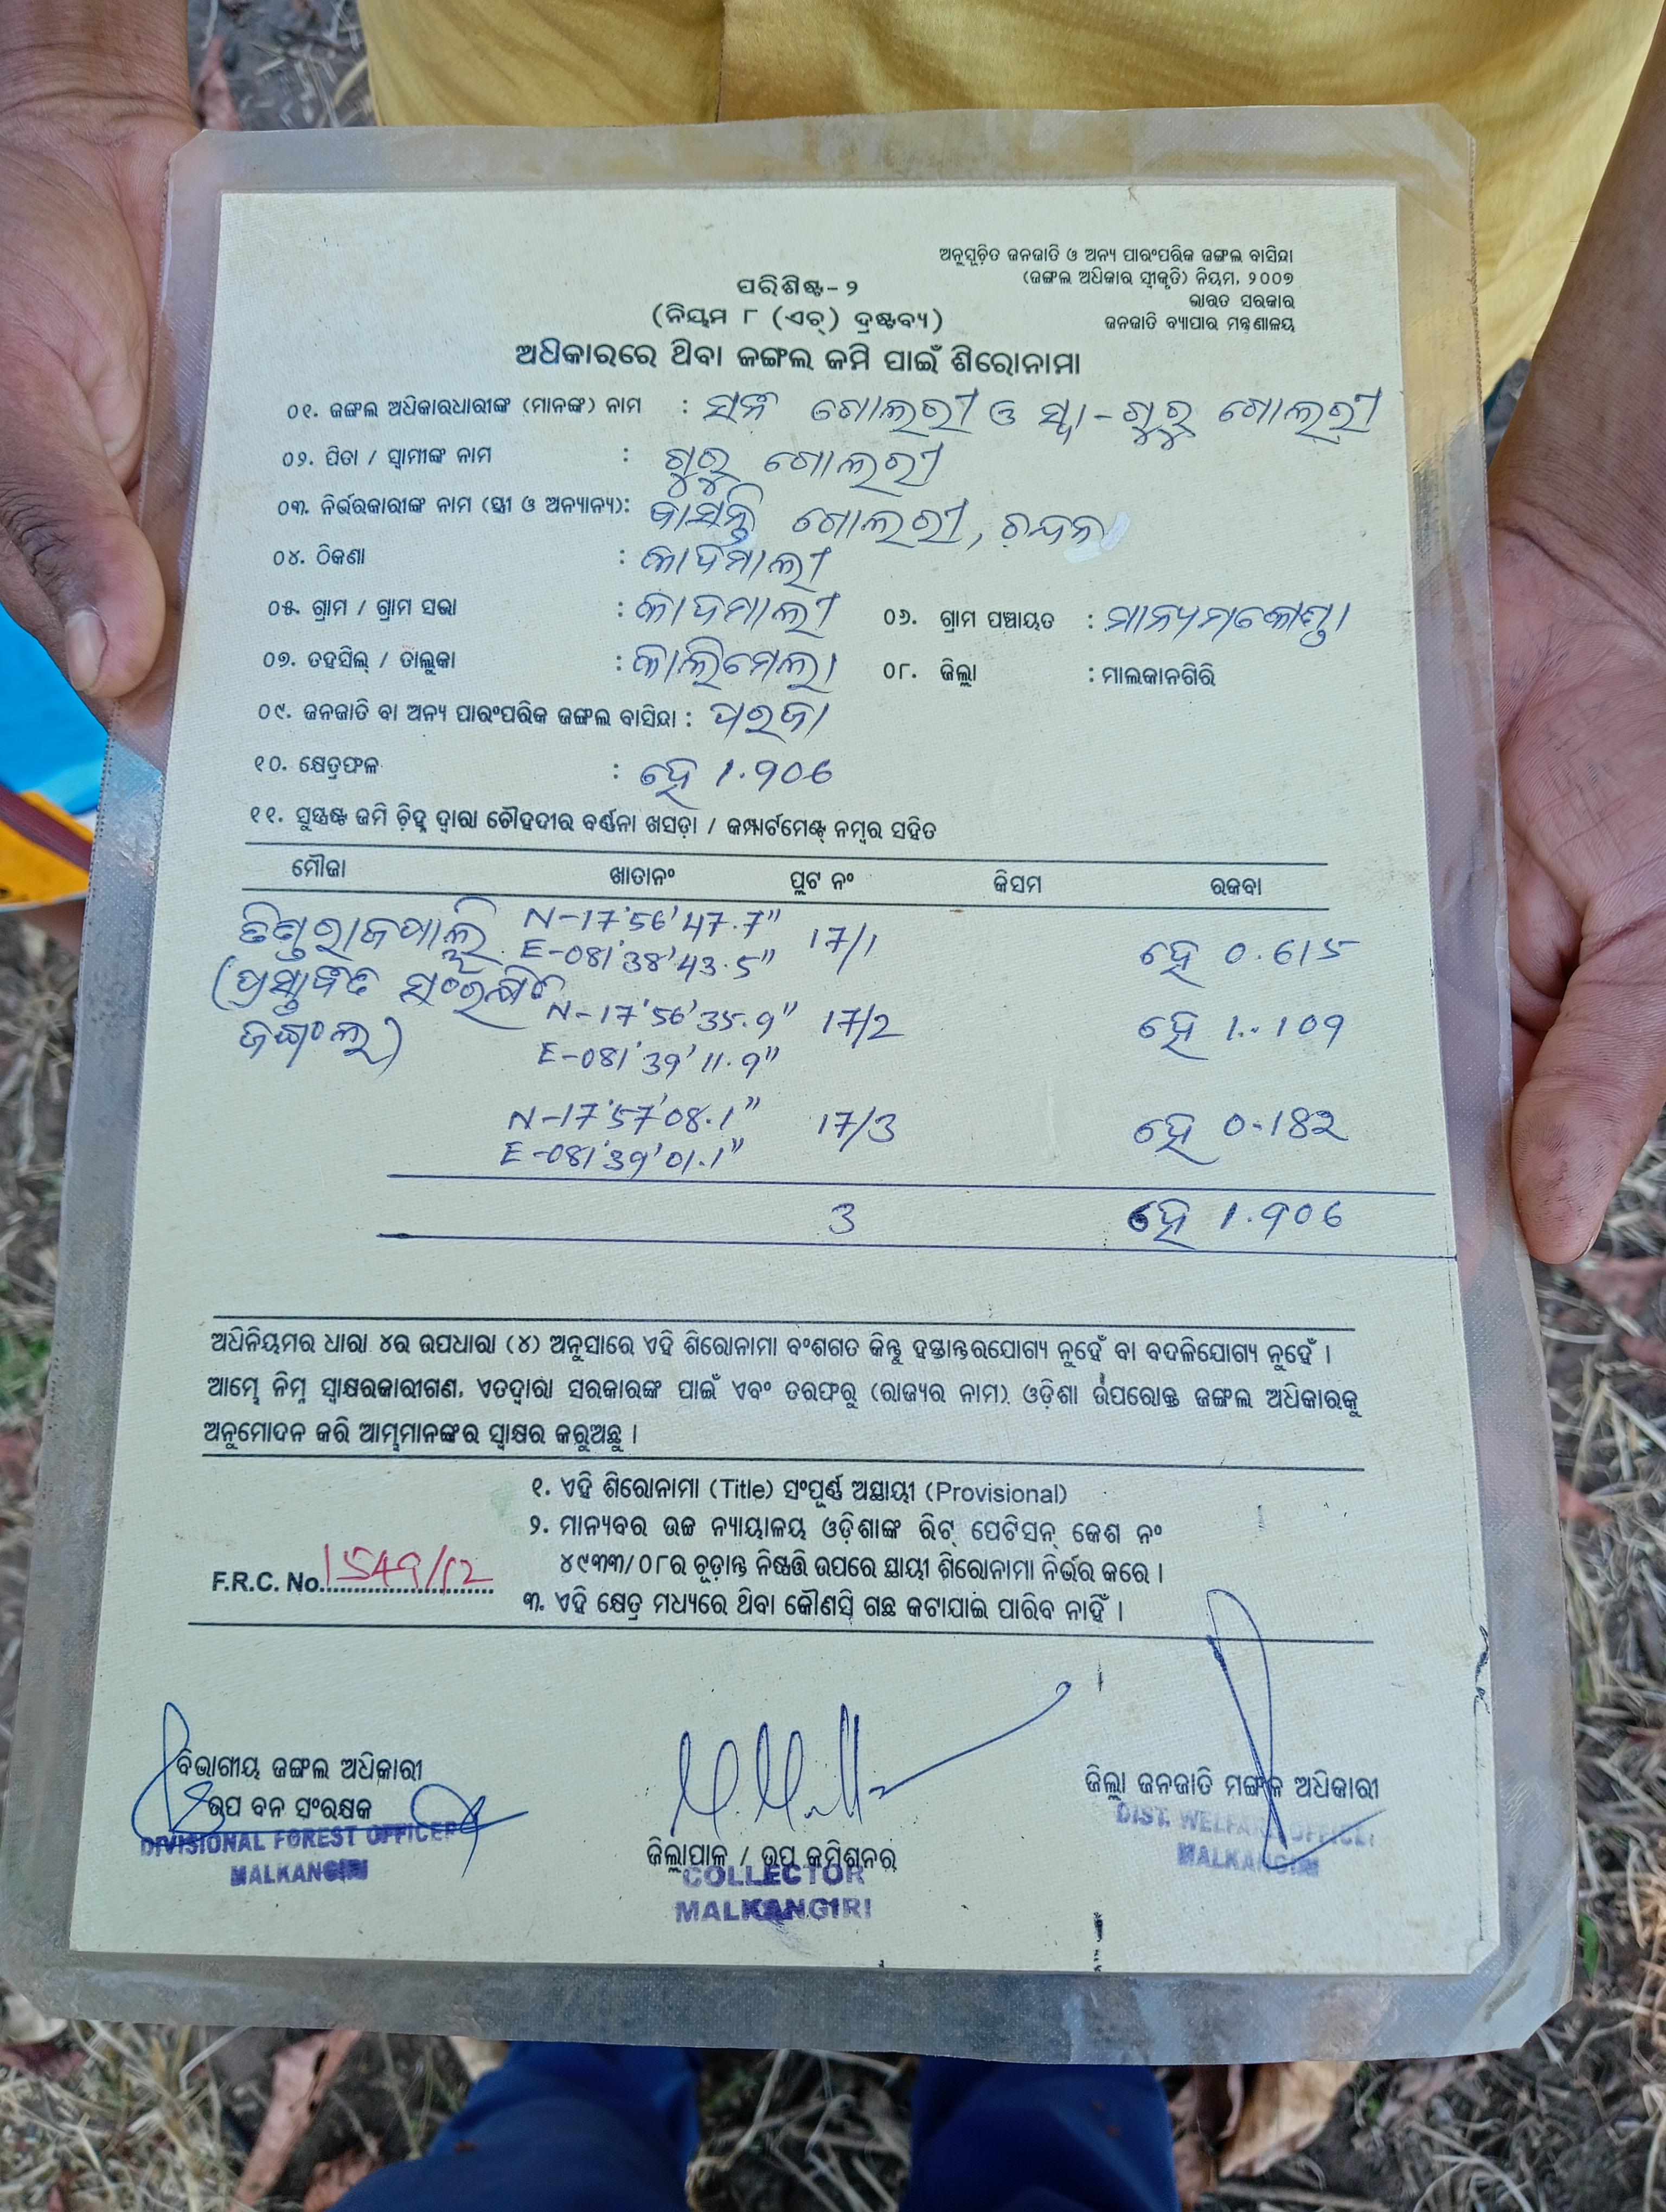 ଅନୁସୂଚିତ ଜନଜାତି ଓ ଅନ୍ୟ ପାରଂପରିକ ଜଙ୍ଗଲ ବାସିନ୍ଦା
(ଜଙ୍ଗଲ ଅଧିକାର ସ୍ୱୀକୃତି) ନିୟମ, ୨୦୦୭
ଭାରତ ସରକାର
ଜନଜାତି ବ୍ୟାପାର ମନ୍ତ୍ରଣାଳୟ
ପରିଶିଷ୍ଟ-୨
(ନିୟମ ୮ (ଏଚ୍) ଦ୍ରଷ୍ଟବ୍ୟ)
ଅଧିକାରରେ ଥିବା ଜଙ୍ଗଲ ଜମି ପାଇଁ ଶିରୋନାମା
୦୧. ଜଙ୍ଗଲ ଅଧିକାରଧାରୀଙ୍କ (ମାନଙ୍କ) ନାମ : ଗୋଲରୀ ଓ ସ୍ୱା-ଗୁରୁ ଗୋଲରୀ
୦୨. ପିତା / ସ୍ୱାମୀଙ୍କ ନାମ : ଗୁରୁ ଗୋଲରୀ
୦୩. ନିର୍ଭରକାରୀଙ୍କ ନାମ (ସ୍ତ୍ରୀ ଓ ଅନ୍ୟାନ୍ୟ): ବାସନ୍ତି ଗୋଲରୀ, ଚନ୍ଦନ
୦୪. ଠିକଣା : କାଦମାଲୀ
୦୫. ଗ୍ରାମ / ଗ୍ରାମ ସଭା : କାଦମାଲୀ ୦୬. ଗ୍ରାମ ପଞ୍ଚାୟତ : ମାନ୍ୟମକୋଣ୍ଡା
୦୭. ତହସିଲ୍ / ତାଲୁକା : କାଲିମେଲା ୦୮. ଜିଲ୍ଲା : ମାଲକାନଗିରି
୦୯. ଜନଜାତି ବା ଅନ୍ୟ ପାରଂପରିକ ଜଙ୍ଗଲ ବାସିନ୍ଦା : ପରଜା
୧୦. କ୍ଷେତ୍ରଫଳ : ହେ 1.906
୧୧. ସୁସ୍ପଷ୍ଟ ଜମି ଚିହ୍ନ ଦ୍ୱାରା ଚୌହଦୀର ବର୍ଣ୍ଣନା ଖସଡ଼ା / କମ୍ପାର୍ଟମେଣ୍ଟ ନମ୍ବର ସହିତ
ମୌଜା ଖାତାନଂ ପ୍ଲଟ ନଂ କିସମ ରକବା
N-17°56'47.7"
E-081°38'43.5" 17/1 ହେ 0.615
(ପ୍ରସ୍ତାବିତ ସଂରକ୍ଷିତ
N-17°56'35.9" 17/2 ହେ 1.109
E-081°39'11.9"
N-17°57'08.1" 17/3 ହେ 0.182
E-081°39'01.1"
3 ହେ 1.906
ଅଧିନିୟମର ଧାରା ୪ର ଉପଧାରା (୪) ଅନୁସାରେ ଏହି ଶିରୋନାମା ବଂଶଗତ କିନ୍ତୁ ହସ୍ତାନ୍ତରଯୋଗ୍ୟ ନୁହେଁ ବା ବଦଳିଯୋଗ୍ୟ ନୁହେଁ ।
ଆମ୍ଭେ ନିମ୍ନ ସ୍ୱାକ୍ଷରକାରୀଗଣ, ଏତଦ୍ୱାରା ସରକାରଙ୍କ ପାଇଁ ଏବଂ ତରଫରୁ (ରାଜ୍ୟର ନାମ) ଓଡ଼ିଶା ଉପରୋକ୍ତ ଜଙ୍ଗଲ ଅଧିକାରକୁ
ଅନୁମୋଦନ କରି ଆମ୍ଭମାନଙ୍କର ସ୍ୱାକ୍ଷର କରୁଅଛୁ ।
୧. ଏହି ଶିରୋନାମା (Title) ସଂପୂର୍ଣ୍ଣ ଅସ୍ଥାୟୀ (Provisional)
୨. ମାନ୍ୟବର ଉଚ୍ଚ ନ୍ୟାୟାଳୟ ଓଡ଼ିଶାଙ୍କ ରିଟ୍ ପେଟିସନ୍ କେଶ ନଂ
୪୯୩୩/୦୮ର ଚୂଡ଼ାନ୍ତ ନିଷ୍ପତ୍ତି ଉପରେ ସ୍ଥାୟୀ ଶିରୋନାମା ନିର୍ଭର କରେ ।
F.R.C. No. 1549/12
୩. ଏହି କ୍ଷେତ୍ର ମଧ୍ୟରେ ଥିବା କୌଣସି ଗଛ କଟାଯାଇ ପାରିବ ନାହିଁ ।
ବିଭାଗୀୟ ଜଙ୍ଗଲ ଅଧିକାରୀ
ଉପ ବନ ସଂରକ୍ଷକ
DIVISIONAL FOREST OFFICER
MALKANGIRI
ଜିଲ୍ଲାପାଳ / ଉପ କମିଶନର୍
COLLECTOR
MALKANGIRI
ଜିଲ୍ଲା ଜନଜାତି ମଙ୍ଗଳ ଅଧିକାରୀ
DIST. WELFARE OFFICER
MALKANGIRI